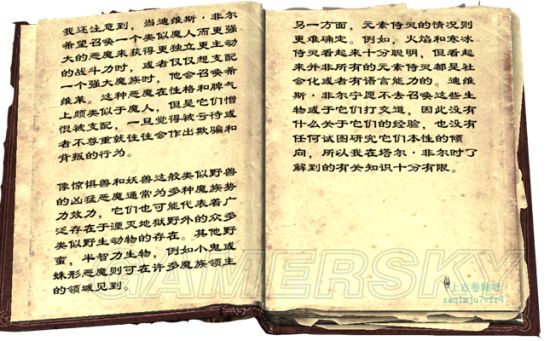 我还注意到，当迪维斯·非尔
希望召唤一个类似魔人而更强
大的恶魔来获得更独立更主动
的战斗力时，或者仅仅想支配
一个强大魔族时，他会召唤希
维莱。这种恶魔在性格和脾气
上颇类似于魔人，但是它们憎
恨被支配，一旦觉得被亏待或
者不尊重就往往会作出欺骗和
背叛的行为。
像惊惧兽和妖兽这般类似野兽
的凶猛恶魔通常为多种魔族势
力效力，它们也可能代表着广
泛存在于湮灭地狱野外的众多
类似野生动物的存在。其他野
蛮，半智力生物，例如小鬼或
蛛形恶魔则可在许多魔族领主
的领域见到。
另一方面，元素侍灵的情况则
更难确定。例如，火焰和寒冰
侍灵看起来十分聪明，但看起
来并非所有的元素侍灵都是社
会化或者有语言能力的。迪维
斯·非尔宁愿不去召唤这些生
物或于它们打交道，因此没有
什么关于它们的经验，也没有
任何试图研究它们本性的倾
向，所以我在塔尔·非尔时了
解到的有关知识十分有限。
GAMERSKY
@上古卷轴吧
zaq1mju7vfr4